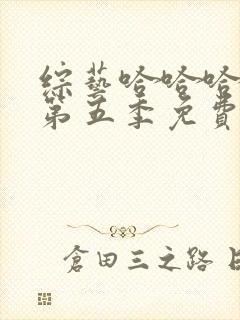 綜藝哈哈哈
第五季免費
倉田三之路